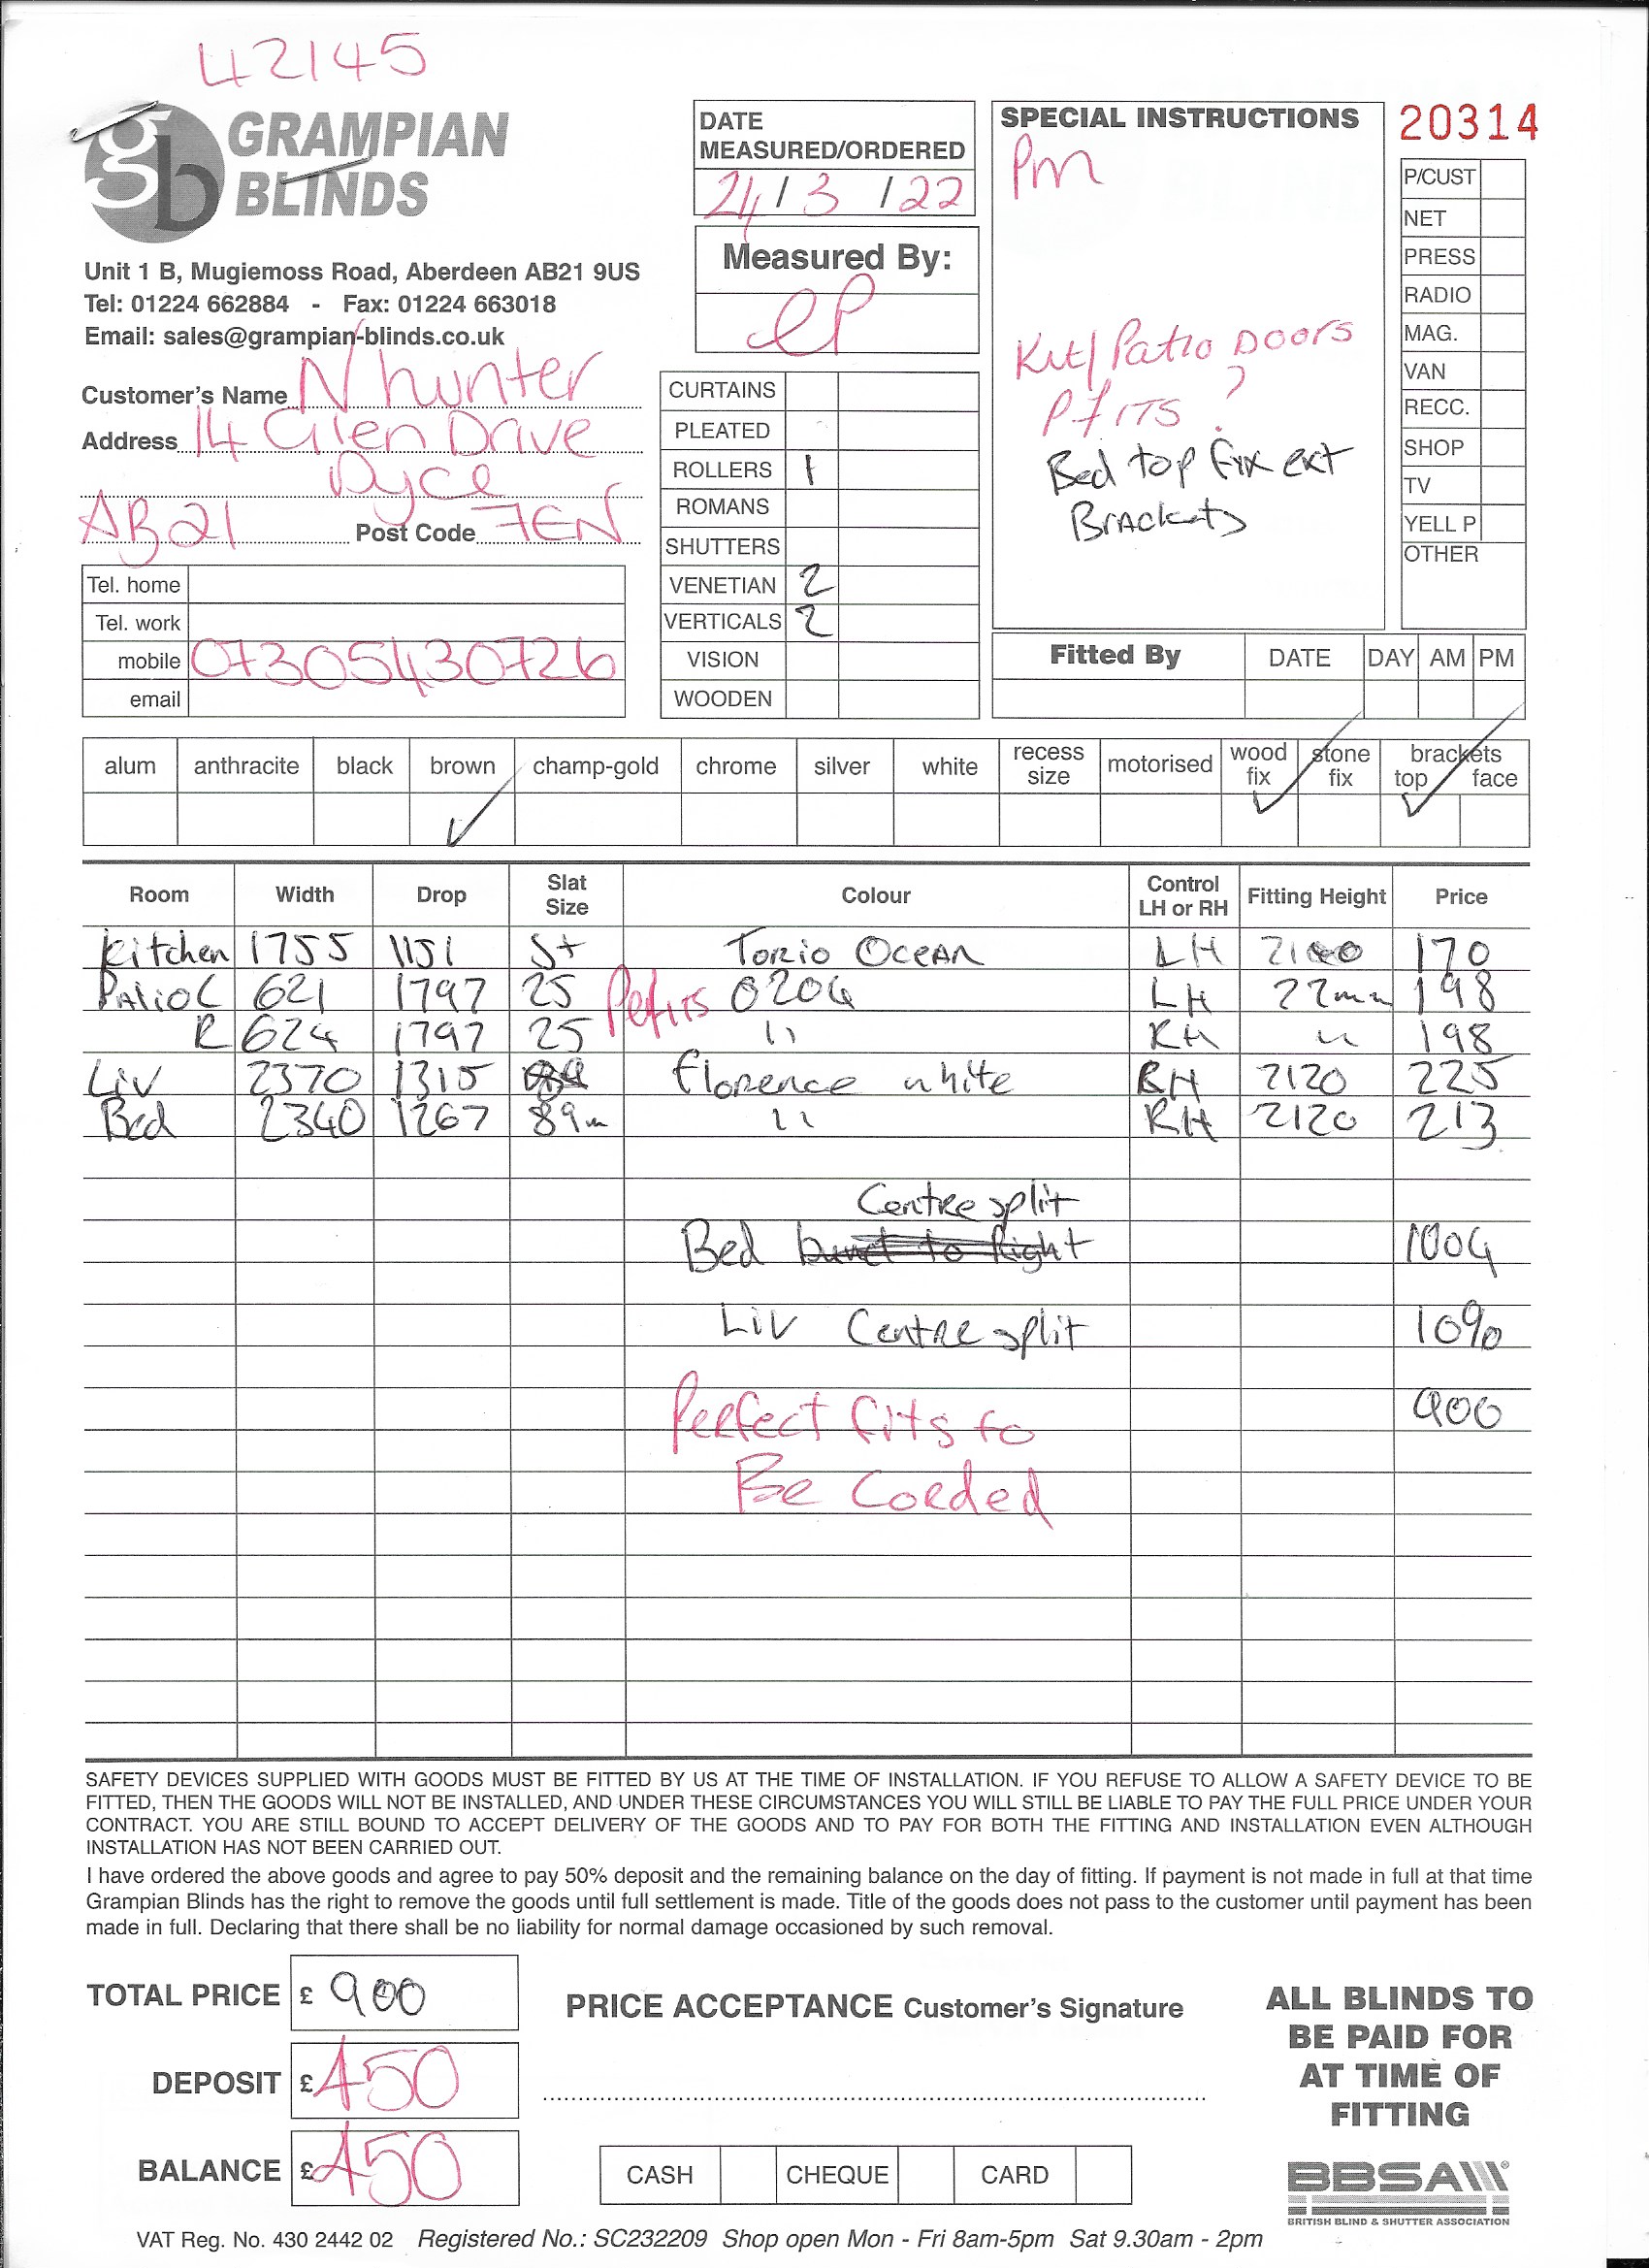 42145
gb GRAMPIAN
BLINDS
Unit 1 B, Mugiemoss Road, Aberdeen AB21 9US
Tel: 01224 662884 - Fax: 01224 663018
Email: sales@grampian-blinds.co.uk
Customer's Name N hunter
Address 14 Glen Drive
Dyce
AB21 Post Code 7EN
Tel. home
Tel. work
mobile 07305430726
email
DATE
MEASURED/ORDERED
24/3/22
Measured By:
CURTAINS
PLEATED
ROLLERS 1
ROMANS
SHUTTERS
VENETIAN 2
VERTICALS 2
VISION
WOODEN
SPECIAL INSTRUCTIONS
Pm
Kit/Patio Doors
Pfits ?
Bed top fix ext
Brackets
20314
P/CUST
NET
PRESS
RADIO
MAG.
VAN
RECC.
SHOP
TV
YELL P
OTHER
Fitted By DATE DAY AM PM
alum anthracite black brown champ-gold chrome silver white recess size motorised wood fix stone fix brackets top face
Room Width Drop Slat Size Colour Control LH or RH Fitting Height Price
Kitchen 1755 1151 St Torio Ocean LH 170
Patio L 621 1797 25 Pefits 0204 LH 22mm 198
R 624 1797 25 " RH " 198
Liv 2370 1315 Florence white RH 2120 225
Bed 2340 1267 89m " RH 2120 213
Centre split
Bed bunch to Right 1004
Liv Centre split 10%
900
Perfect fits to
Be Corded
SAFETY DEVICES SUPPLIED WITH GOODS MUST BE FITTED BY US AT THE TIME OF INSTALLATION. IF YOU REFUSE TO ALLOW A SAFETY DEVICE TO BE
FITTED, THEN THE GOODS WILL NOT BE INSTALLED, AND UNDER THESE CIRCUMSTANCES YOU WILL STILL BE LIABLE TO PAY THE FULL PRICE UNDER YOUR
CONTRACT. YOU ARE STILL BOUND TO ACCEPT DELIVERY OF THE GOODS AND TO PAY FOR BOTH THE FITTING AND INSTALLATION EVEN ALTHOUGH
INSTALLATION HAS NOT BEEN CARRIED OUT.
I have ordered the above goods and agree to pay 50% deposit and the remaining balance on the day of fitting. If payment is not made in full at that time
Grampian Blinds has the right to remove the goods until full settlement is made. Title of the goods does not pass to the customer until payment has been
made in full. Declaring that there shall be no liability for normal damage occasioned by such removal.
TOTAL PRICE £ 900
DEPOSIT £ 450
BALANCE £ 450
PRICE ACCEPTANCE Customer's Signature
CASH CHEQUE CARD
ALL BLINDS TO
BE PAID FOR
AT TIME OF
FITTING
BBSA
BRITISH BLIND & SHUTTER ASSOCIATION
VAT Reg. No. 430 2442 02 Registered No.: SC232209 Shop open Mon - Fri 8am-5pm Sat 9.30am - 2pm